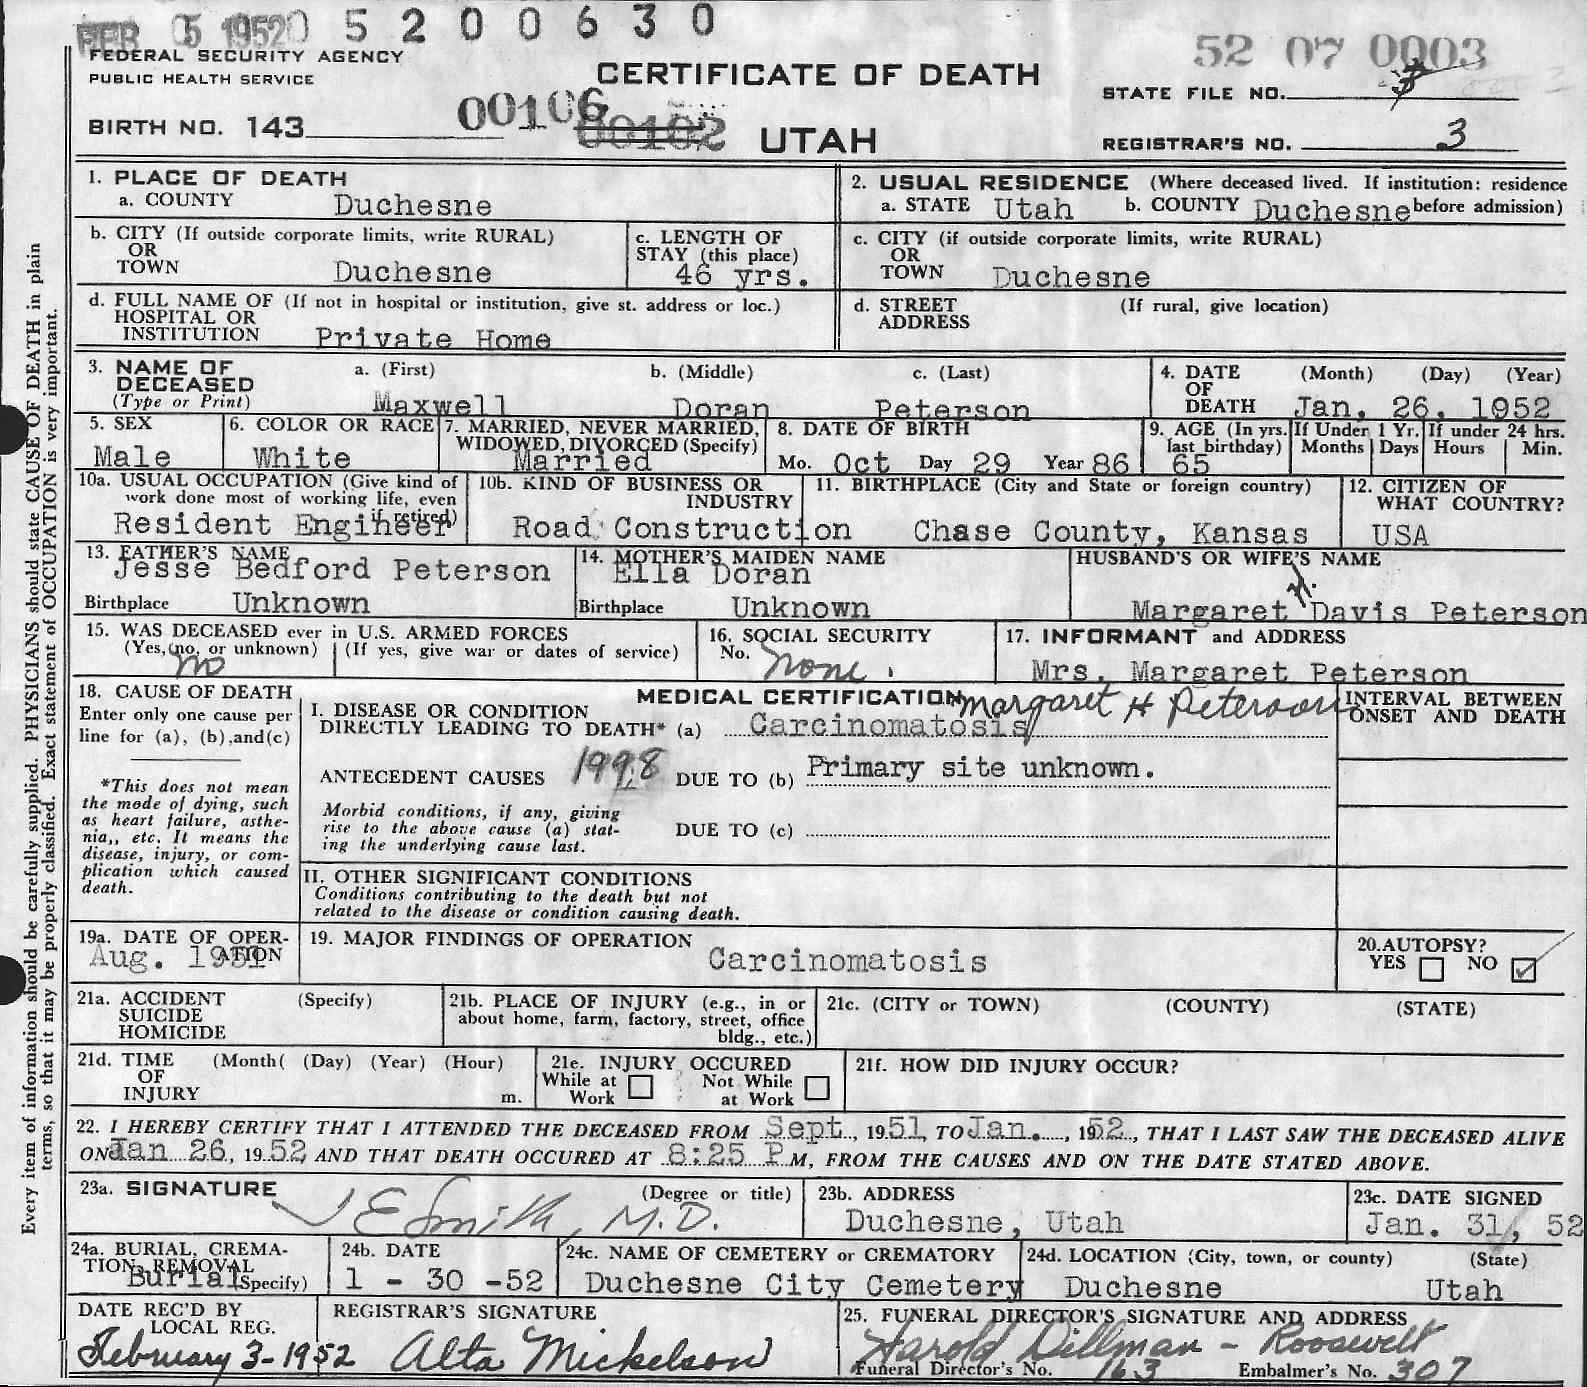 FEB 5 1952 5 2 0 0 6 3 0
52 07 0003
FEDERAL SECURITY AGENCY
PUBLIC HEALTH SERVICE
CERTIFICATE OF DEATH
STATE FILE NO.
BIRTH NO. 143
00106
00102
UTAH
REGISTRAR'S NO. 3
Every item of information should be carefully supplied. PHYSICIANS should state CAUSE OF DEATH in plain
terms, so that it may be properly classified. Exact statement of OCCUPATION is very important.
1. PLACE OF DEATH
a. COUNTY Duchesne
2. USUAL RESIDENCE (Where deceased lived. If institution: residence
a. STATE Utah b. COUNTY Duchesne before admission)
b. CITY (If outside corporate limits, write RURAL)
OR
TOWN Duchesne
c. LENGTH OF
STAY (this place)
46 yrs.
c. CITY (if outside corporate limits, write RURAL)
OR
TOWN Duchesne
d. FULL NAME OF (If not in hospital or institution, give st. address or loc.)
HOSPITAL OR
INSTITUTION Private Home
d. STREET (If rural, give location)
ADDRESS
3. NAME OF a. (First) b. (Middle) c. (Last)
DECEASED
(Type or Print) Maxwell Doran Peterson
4. DATE (Month) (Day) (Year)
OF
DEATH Jan. 26, 1952
5. SEX
Male
6. COLOR OR RACE
White
7. MARRIED, NEVER MARRIED,
WIDOWED, DIVORCED (Specify)
Married
8. DATE OF BIRTH
Mo. Oct Day 29 Year 86
9. AGE (In yrs.
last birthday)
65
If Under 1 Yr.
Months Days
If under 24 hrs.
Hours Min.
10a. USUAL OCCUPATION (Give kind of
work done most of working life, even
if retired)
Resident Engineer
10b. KIND OF BUSINESS OR
INDUSTRY
Road Construction
11. BIRTHPLACE (City and State or foreign country)
Chase County, Kansas
12. CITIZEN OF
WHAT COUNTRY?
USA
13. FATHER'S NAME
Jesse Bedford Peterson
Birthplace Unknown
14. MOTHER'S MAIDEN NAME
Ella Doran
Birthplace Unknown
HUSBAND'S OR WIFE'S NAME
H.
Margaret Davis Peterson
15. WAS DECEASED ever in U.S. ARMED FORCES
(Yes, no, or unknown) (If yes, give war or dates of service)
no
16. SOCIAL SECURITY
No. none.
17. INFORMANT and ADDRESS
Mrs. Margaret Peterson
Margaret H Peterson
18. CAUSE OF DEATH
Enter only one cause per
line for (a), (b), and (c)
*This does not mean
the mode of dying, such
as heart failure, asthe-
nia,, etc. It means the
disease, injury, or com-
plication which caused
death.
MEDICAL CERTIFICATION
I. DISEASE OR CONDITION
DIRECTLY LEADING TO DEATH* (a) Carcinomatosis
ANTECEDENT CAUSES 199.8 DUE TO (b) Primary site unknown.
Morbid conditions, if any, giving
rise to the above cause (a) stat-
ing the underlying cause last.
DUE TO (c)
INTERVAL BETWEEN
ONSET AND DEATH
II. OTHER SIGNIFICANT CONDITIONS
Conditions contributing to the death but not
related to the disease or condition causing death.
19a. DATE OF OPER-
ATION
Aug. 1951
19. MAJOR FINDINGS OF OPERATION
Carcinomatosis
20. AUTOPSY?
YES NO
21a. ACCIDENT (Specify)
SUICIDE
HOMICIDE
21b. PLACE OF INJURY (e.g., in or
about home, farm, factory, street, office
bldg., etc.)
21c. (CITY or TOWN) (COUNTY) (STATE)
21d. TIME (Month( (Day) (Year) (Hour)
OF
INJURY m.
21e. INJURY OCCURED
While at Not While
Work at Work
21f. HOW DID INJURY OCCUR?
22. I HEREBY CERTIFY THAT I ATTENDED THE DECEASED FROM Sept., 1951, TO Jan., 1952, THAT I LAST SAW THE DECEASED ALIVE
ON Jan 26, 1952, AND THAT DEATH OCCURED AT 8:25 P M, FROM THE CAUSES AND ON THE DATE STATED ABOVE.
23a. SIGNATURE (Degree or title)
J E Smith, M.D.
23b. ADDRESS
Duchesne, Utah
23c. DATE SIGNED
Jan. 31, 52
24a. BURIAL, CREMA-
TION, REMOVAL
Burial (Specify)
24b. DATE
1 - 30 -52
24c. NAME OF CEMETERY or CREMATORY
Duchesne City Cemetery
24d. LOCATION (City, town, or county) (State)
Duchesne Utah
DATE REC'D BY
LOCAL REG.
February 3-1952
REGISTRAR'S SIGNATURE
Alta Mickelson
25. FUNERAL DIRECTOR'S SIGNATURE AND ADDRESS
Harold Dillman - Roosevelt
Funeral Director's No. 163 Embalmer's No. 307